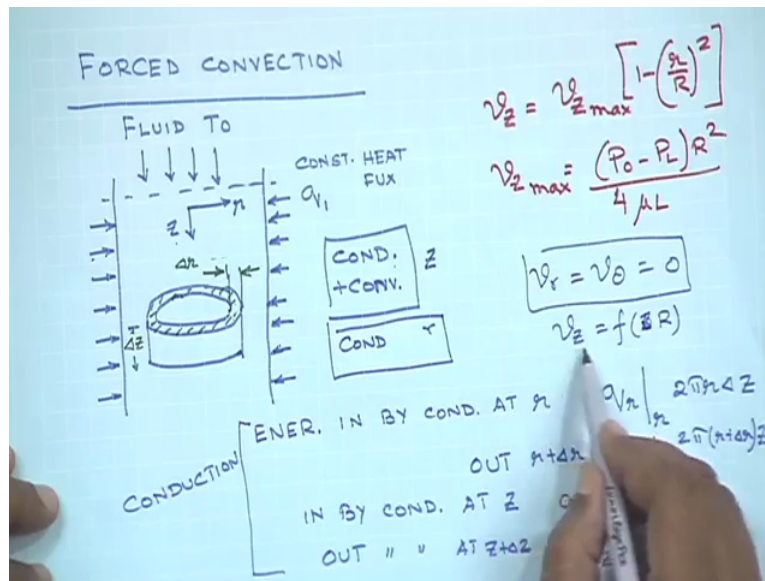 FORCED CONVECTION
FLUID TO
CONST. HEAT
FUX
q₁
r
z
Δr
Δz
COND.
+CONV.
z
COND r
v_z = v_z max [1-(r/R)²]
v_z max = (P₀ - P_L)R² / 4 μL
v_r = v_θ = 0
v_z = f( R)
CONDUCTION
ENER. IN BY COND. AT r q_r|_r 2πrΔz
OUT r+Δr 2π(r+Δr)z
IN BY COND. AT z
OUT " " AT z+Δz